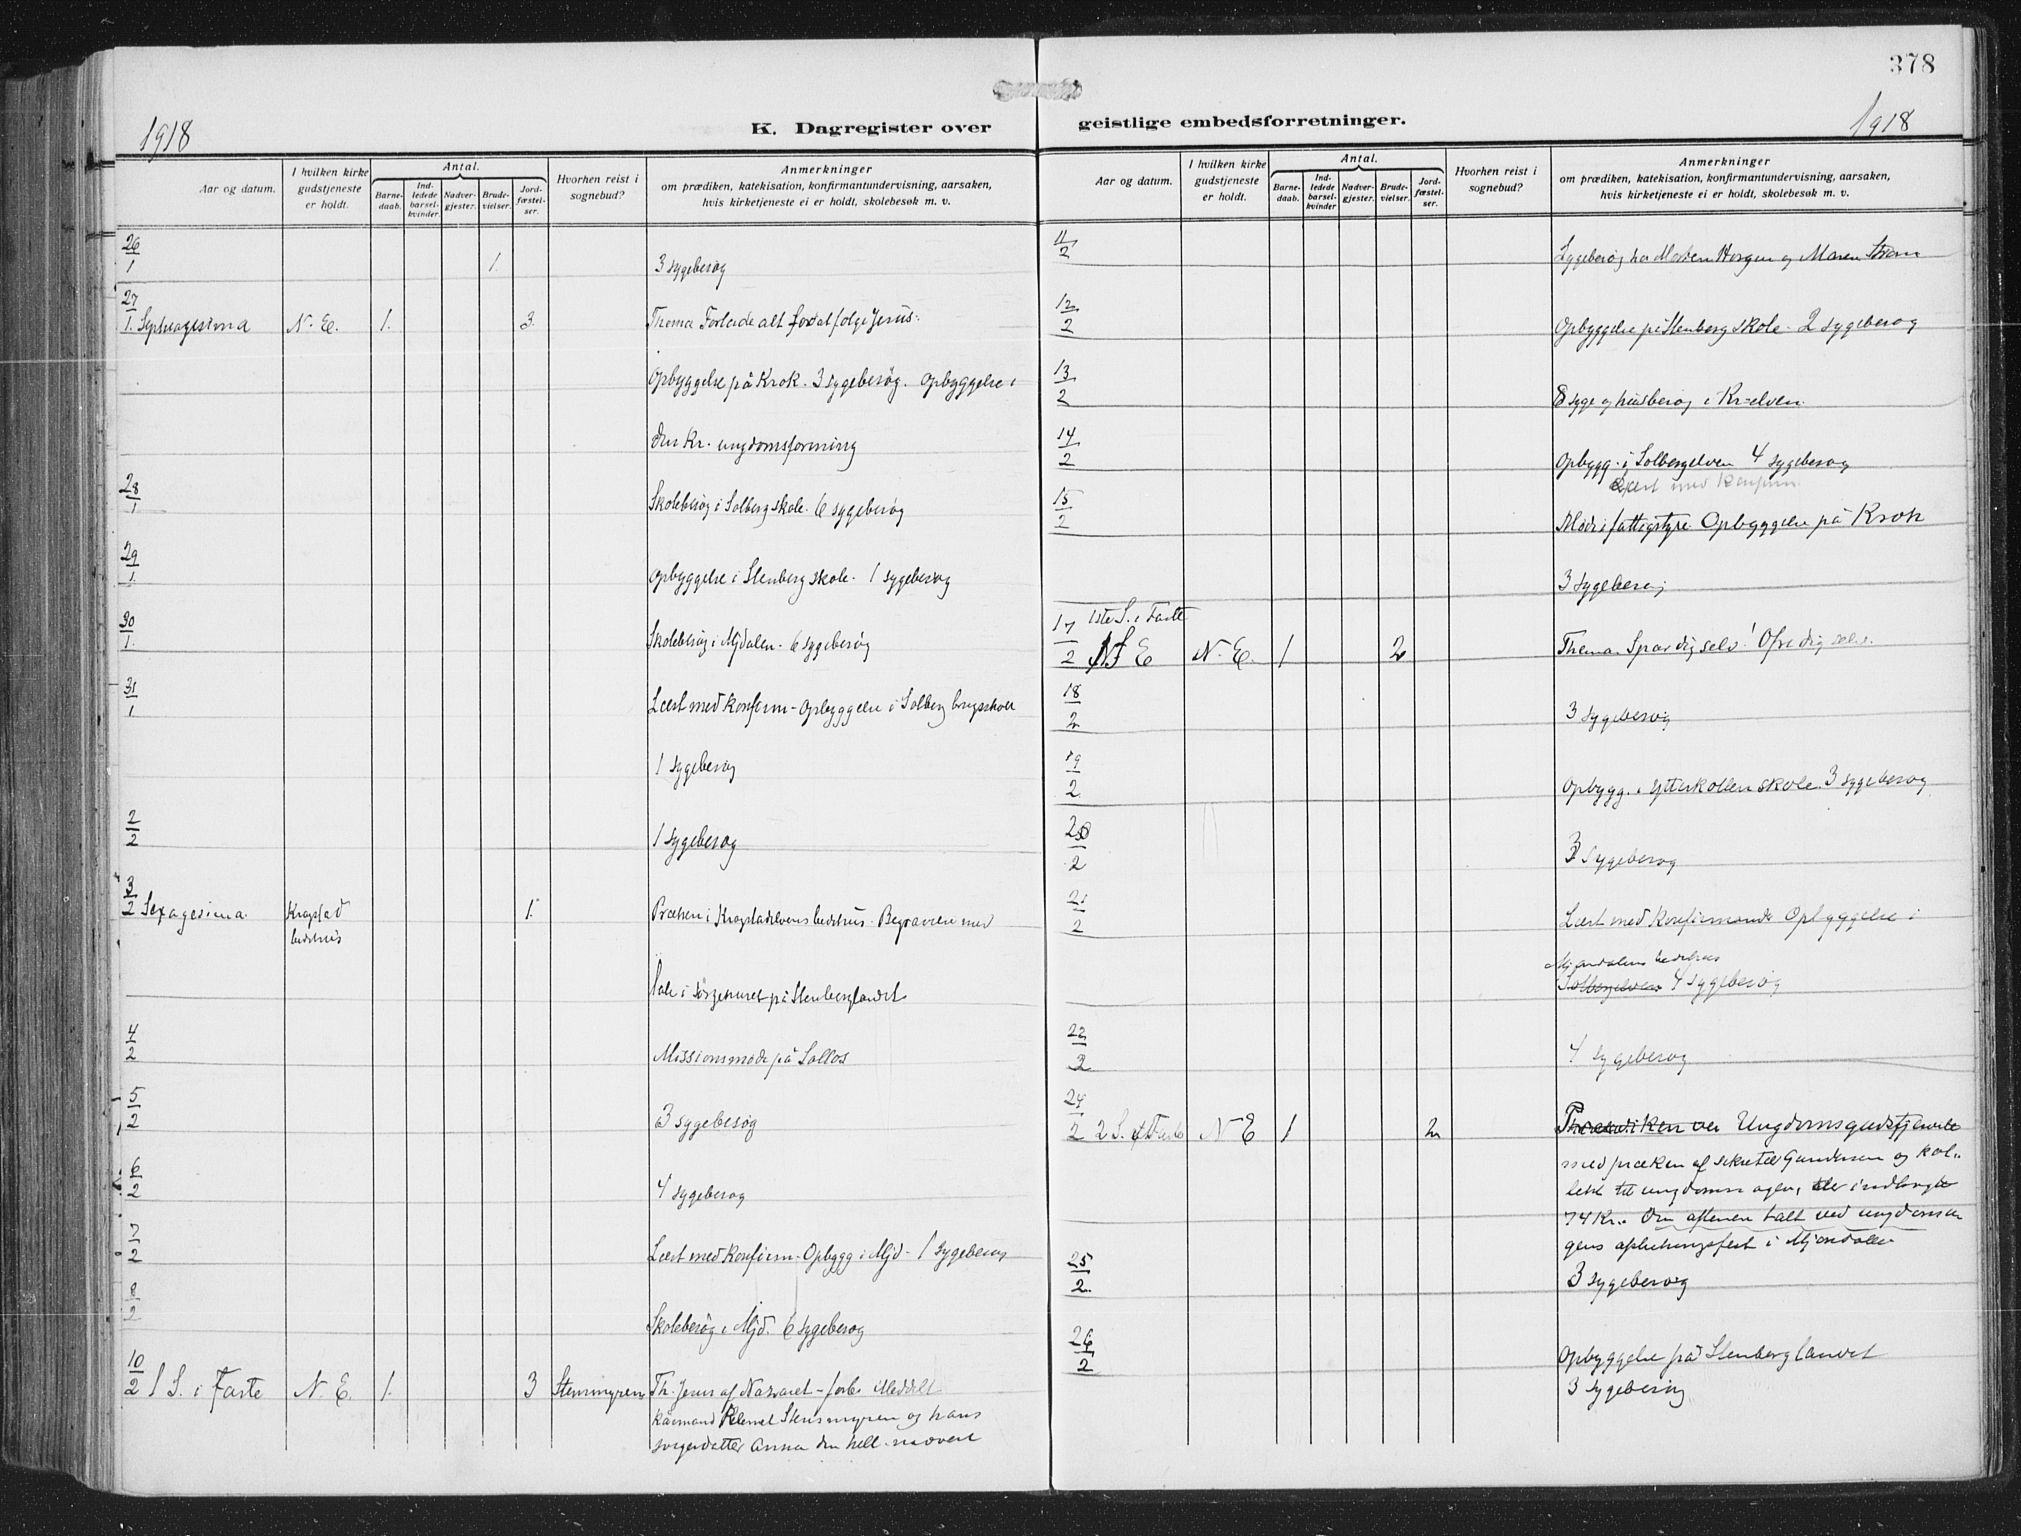 378
1918
1918
K. Dagregister over
geistlige embedsforretninger.
Aar og datum.
I hvilken kirke gudstjeneste er holdt.
Antal.
Barne-daab.
Ind-ledede barsel-kvinder
Nadver-gjester.
Brude-vielser.
Jord-fæstel-ser.
Hvorhen reist i sognebud?
Anmerkninger
om prædiken, katekisation, konfirmantundervisning, aarsaken,
hvis kirketjeneste ei er holdt, skolebesøk m. v.
26/1 1. 3 sygebesøg
27/1. Septuagesima N. E. 1. 3. Thema Forlade alt for at følge Jesus.
Opbyggelse på Krok. 3 sygebesøg. Opbyggelse i
den Kr. ungdomsforening
28/1 Skolebesøg i Solberg skole. 6 sygebesøg
29/1. Opbyggelse i Stenberg skole. 1 sygebesøg
30/1. Skolebesøg i Mjdalen. 6 sygebesøg
31/1 Læst med konfirm - Opbyggelse i Solberg brugsskole
1 sygebesøg
2/2 1 sygebesøg
3/2 Sexagesima Krogstad 1. Præken i Krogstadelvens bedehus. Begravelse med
bedehus
tale i sørgehuset på Stenberglandet
4/2 Missionsmøde på Solløs
5/2 3 sygebesøg
6/2 4 sygebesøg
7/2 Læst med konfirm - Opbygg i Mjd - 1 sygebesøg
8/2 Skolebesøg i Mjd. 6 sygebesøg
10/2 1 S. i Faste N. E. 1. 3 Stensmyren Th. Jesus af Nazaret - forb. Meddelt
kårmand Stensmyren og hans
svigerdatter Anna den hell. nadvert
Aar og datum.
I hvilken kirke gudstjeneste er holdt.
Antal.
Barne-daab.
Ind-ledede barsel-kvinder
Nadver-gjester.
Brude-vielser.
Jord-fæstel-ser.
Hvorhen reist i sognebud?
Anmerkninger
om prædiken, katekisation, konfirmantundervisning, aarsaken,
hvis kirketjeneste ei er holdt, skolebesøk m. v.
11/2 Sygebesøg hos Horgen og Maren Strøm
12/2 Opbyggelse på Stenberg skole. 2 sygebesøg
13/2 8 syge og husbesøg i Kr-elven
14/2 Opbygg. i Solbergelven 4 sygebesøg
Læst med Konfirm.
15/2 Møde i fattigstyre Opbyggelse på Krok
3 sygebesøg
1ste S. i Faste
17/2 N E N. E. 1 2 Thema. Spar dig selv! Ofre dig selv.
18/2 3 sygebesøg
19/2 Opbygg. i Ytterkollen skole. 3 sygebesøg
20/2 3 sygebesøg
21/2 Læst med Konfirmande Opbyggelse i
Mjøndalens bedehus
Solbergelven 4 sygebesøg
22/2 4 sygebesøg
24/2 2 S. i Faste N E 1 2 Ungdomsgudstjeneste
med præken af sekretær Gundersen og kol-
lekt til ungdomssagen, der indbragte
74 Kr. Om aftenen talt ved ungdomsda
gens afslutningsfest i Mjøndalen
25/2 3 sygebesøg
26/2 Opbyggelse på Stenberglandet
3 sygebesøg